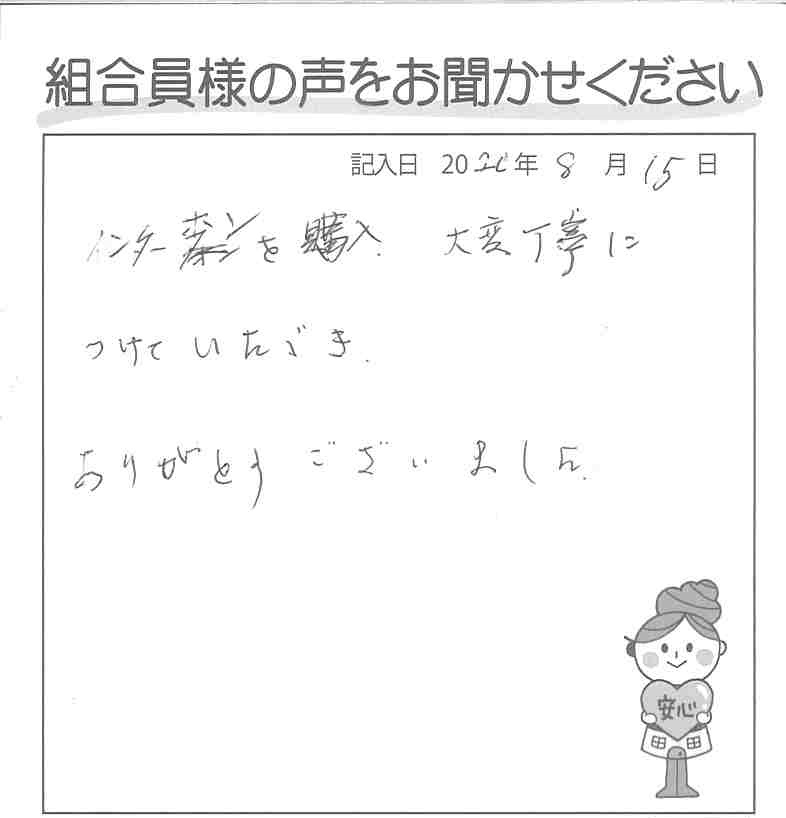 組合員様の声をお聞かせください
記入日 20 年 8 月 15 日
インターホンを購入. 大変丁寧に
つけていただき.
ありがとうございました.
安心